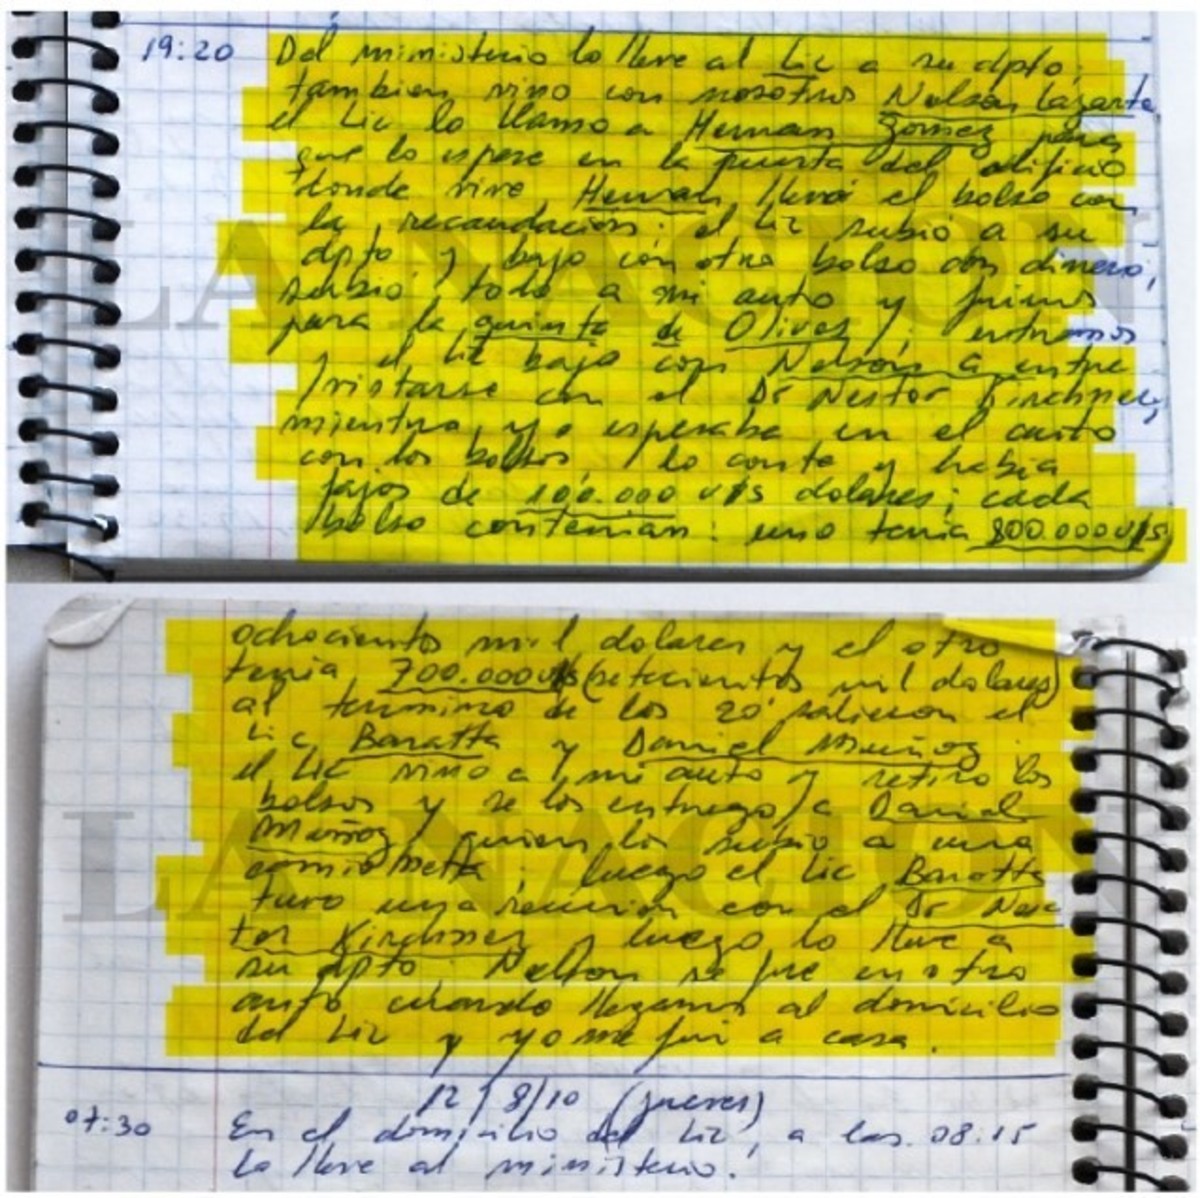 19:20 Del ministerio lo lleve al Lic a su dpto;
tambien vino con nosotros Nelson Lazarte
el Lic lo llamo a Hernan Gomez para
que lo espere en la puerta del edificio
donde vive Hernan llevó el bolso con
la recaudacion; el Lic subió a su
dpto y bajo con otro bolso con dinero,
subió todo a mi auto y fuimos
para la quinta de Olivos, entramos
y el Lic bajo con Nelson a entre
vistarse con el Dr Nestor Kirchner,
mientras yo esperaba en el auto
con los bolsos, lo conte y habia
fajos de 100.000 u$s dolares; cada
bolso contenian: uno tenia 800.000 u$s
ochocientos mil dolares y el otro
tenia 700.000 u$s (setecientos mil dolares)
al termino de los 20' salieron el
Lic Baratta y Daniel Muñoz
el Lic vino a mi auto y retiro los
bolsos y se los entrego a Daniel
Muñoz, quien los subio a una
camionetta; luego el Lic Baratta
tuvo una reunion con el Dr Nes
tor Kirchner y luego lo lleve a
su dpto. Nelson se fue en otro
auto cuando llegamos al domicilio
del Lic y yo me fui a casa.
12/8/10 (jueves)
07:30 En el domicilio del Lic, a las 08:15
lo lleve al ministerio.
LA NACION
LA NACION